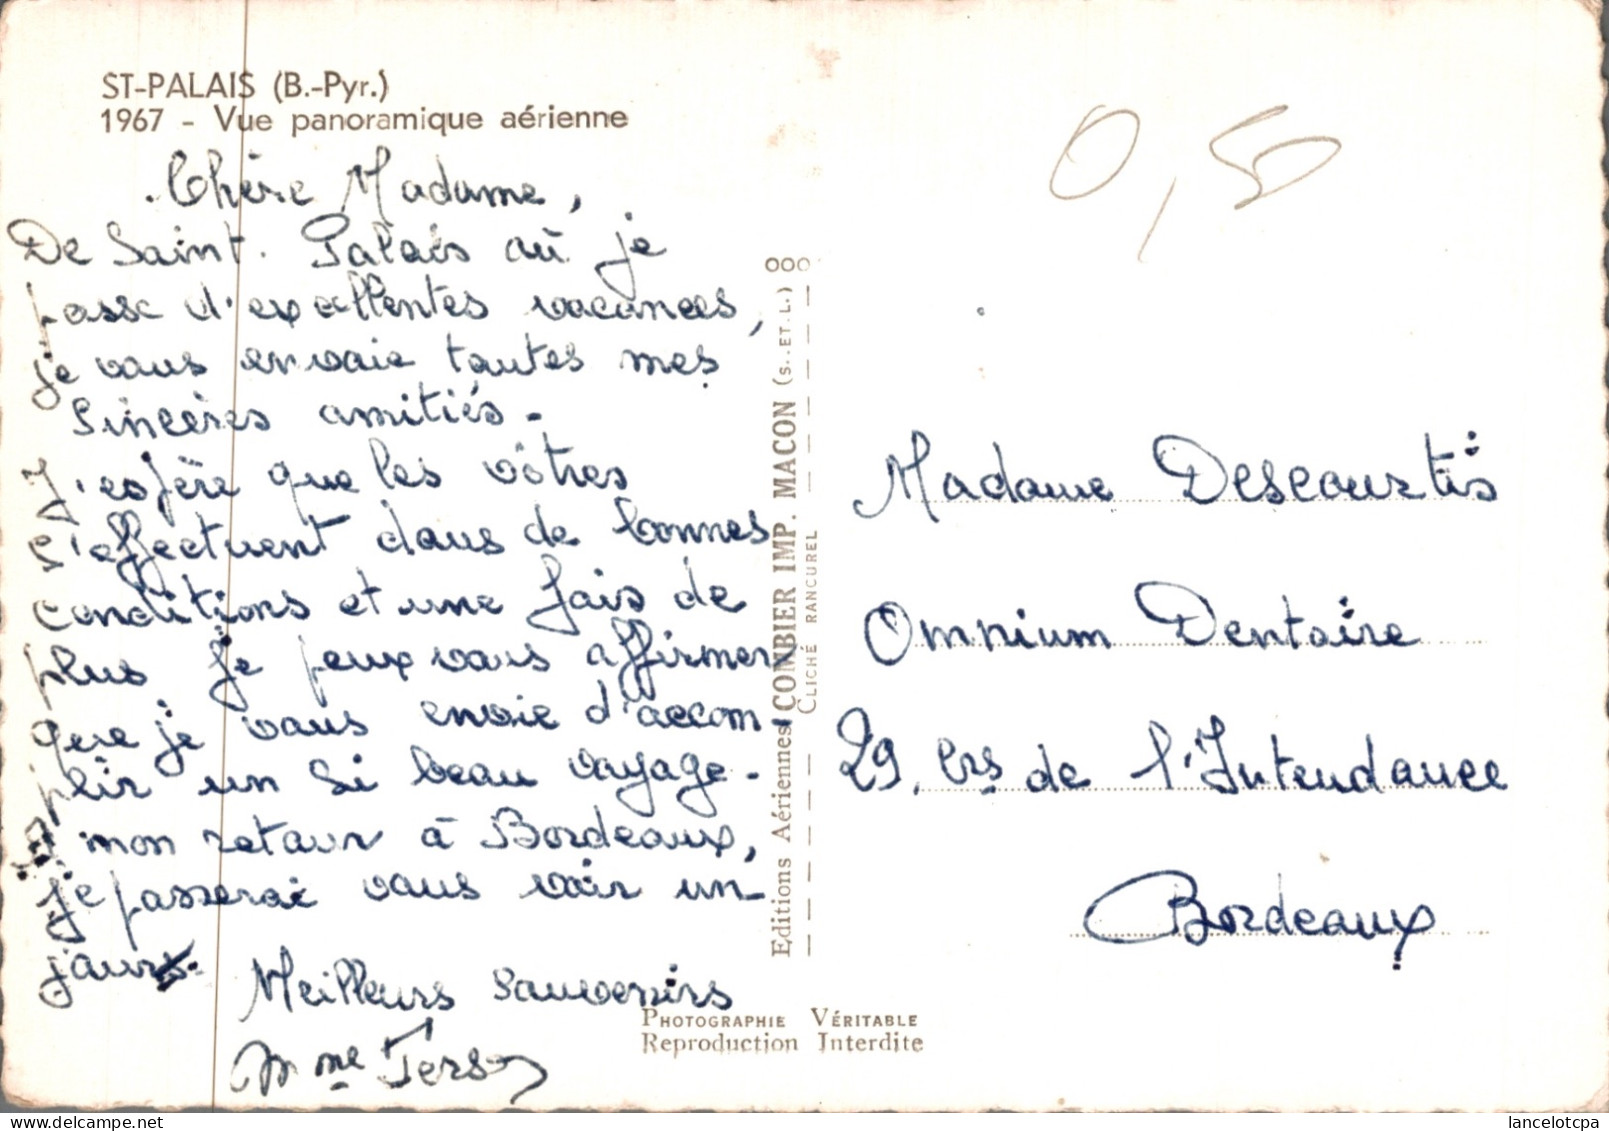 ST-PALAIS (B.-Pyr.)
1967 - Vue panoramique aérienne
Chère Madame,
De Saint. Palais où je
passe d'excellentes vacances,
je vous envoie toutes mes
sincères amitiés.
J'espère que les vôtres
s'effectuent dans de bonnes
conditions et une fois de
plus, je peux vous affirmer
que je vous envie d'accom-
plir un si beau voyage.
mon retour à Bordeaux,
je passerai vous voir un
jour.
Meilleurs souvenirs
Mme Terson
Editions Aériennes COMBIER IMP. MACON (S.-ET-L.)
CLICHÉ RANCUREL
PHOTOGRAPHIE VÉRITABLE
Reproduction Interdite
0,50
Madame Descourtis
Omnium Dentaire
29, Crs de l'Intendance
Bordeaux
www.lancelotcpa
lancelotcpa